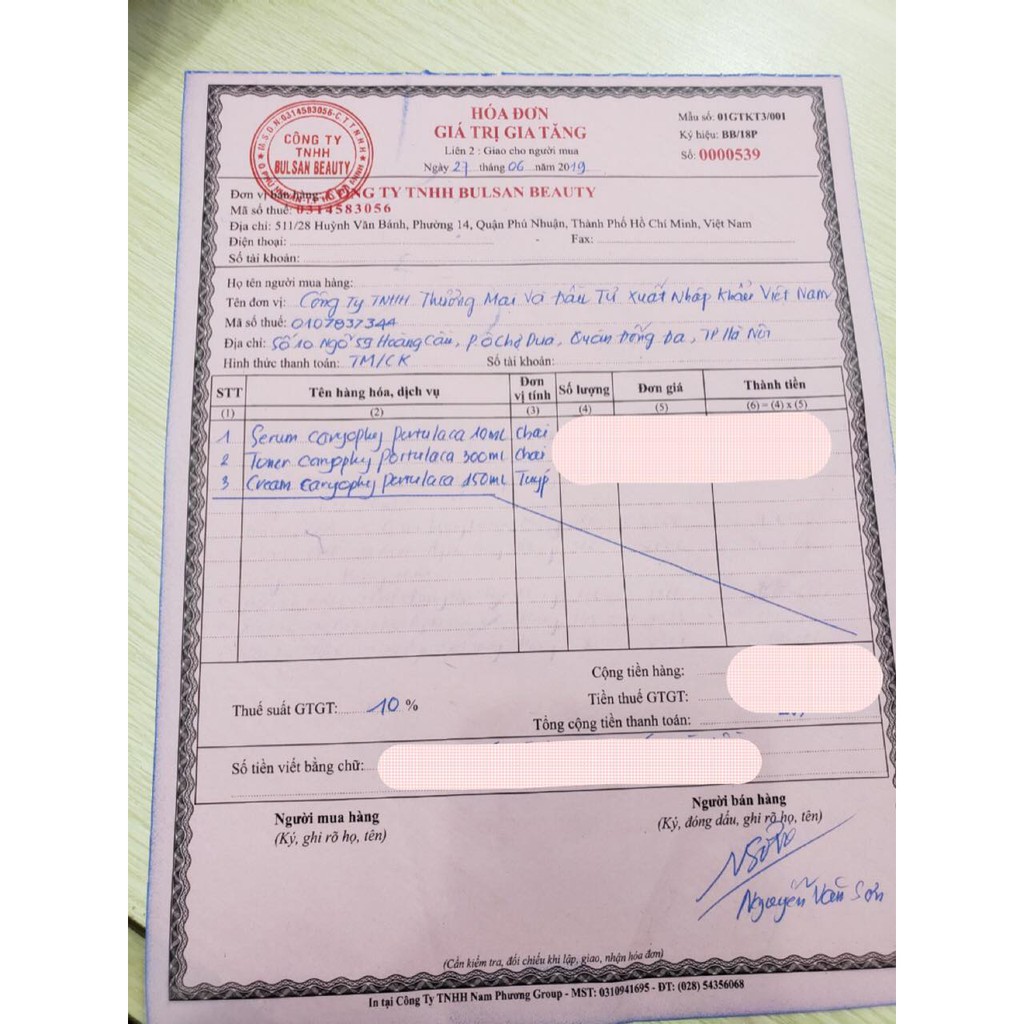 M.S.D.N:0314583056-C.T.T.N.H.H
CÔNG TY
TNHH
BULSAN BEAUTY
HÓA ĐƠN
GIÁ TRỊ GIA TĂNG
Liên 2 : Giao cho người mua
Ngày 27 tháng 06 năm 2019
Mẫu số: 01GTKT3/001
Ký hiệu: BB/18P
Số: 0000539
Đơn vị bán hàng: CÔNG TY TNHH BULSAN BEAUTY
Mã số thuế: 0314583056
Địa chỉ: 511/28 Huỳnh Văn Bánh, Phường 14, Quận Phú Nhuận, Thành Phố Hồ Chí Minh, Việt Nam
Điện thoại: Fax:
Số tài khoản:
Họ tên người mua hàng:
Tên đơn vị: Công Ty TNHH Thương Mại Và Đầu Tư Xuất Nhập Khẩu Việt Nam
Mã số thuế: 0107837344
Địa chỉ: Số 10 Ngõ 59 Hoàng Cầu, P Ô Chợ Dừa, Quận Đống Đa, TP Hà Nội
Hình thức thanh toán: TM/CK Số tài khoản:
STT Tên hàng hóa, dịch vụ Đơn vị tính Số lượng Đơn giá Thành tiền
(1) (2) (3) (4) (5) (6) = (4) x (5)
1 Serum caryophy portulaca 10ml Chai
2 Toner caryophy portulaca 300ml Chai
3 Cream caryophy portulaca 150ml Tuýp
Cộng tiền hàng:
Thuế suất GTGT: 10 % Tiền thuế GTGT:
Tổng cộng tiền thanh toán:
Số tiền viết bằng chữ:
Người mua hàng
(Ký, ghi rõ họ, tên)
Người bán hàng
(Ký, đóng dấu, ghi rõ họ, tên)
Nguyễn Văn Sơn
(Cần kiểm tra, đối chiếu khi lập, giao, nhận hóa đơn)
In tại Công Ty TNHH Nam Phương Group - MST: 0310941695 - ĐT: (028) 54356068